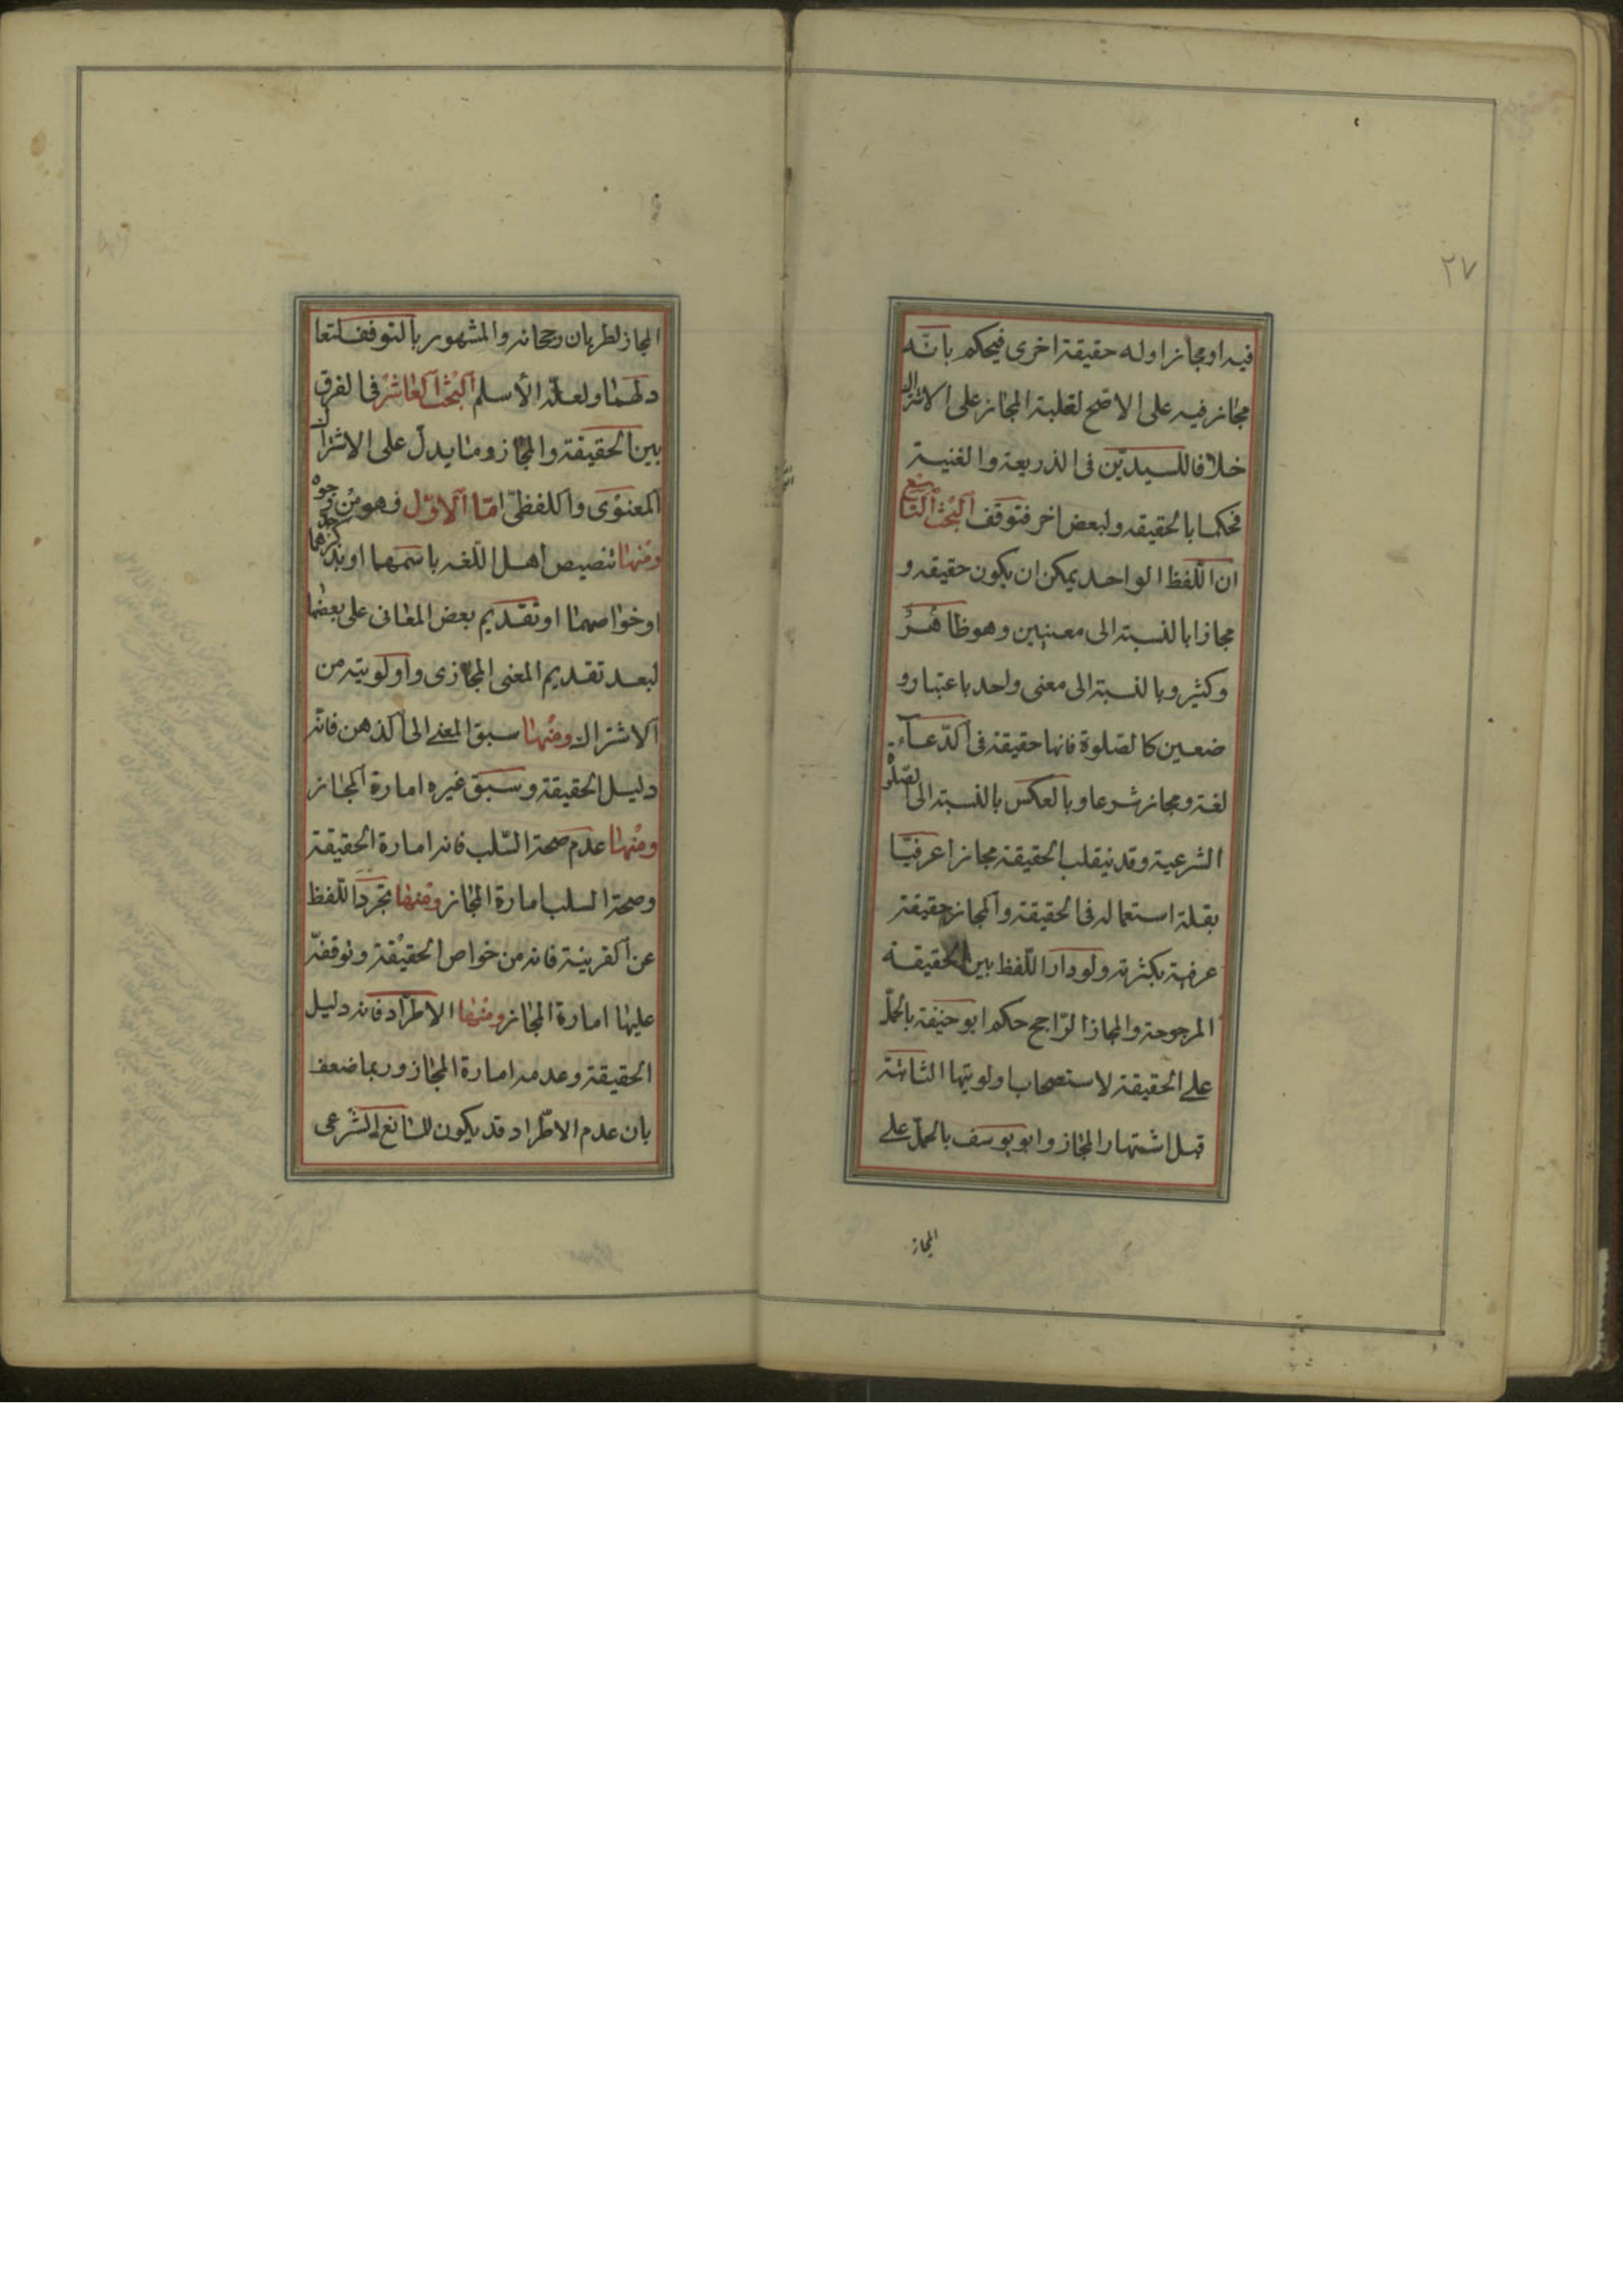 ٢٧
فيه او مجاز او له حقيقة اخرى فيحكم بانّه
مجاز فيه على الاصح لغلبة المجاز على الاشتراك
خلافا للسيدين فى الذريعة والغنية
فحكما بالحقيقه ولبعض اخر فتوقف البحث التاسع
ان اللفظ الواحد يمكن ان يكون حقيقه و
مجازا بالنسبة الى معنيين وهو ظاهر
وكثير وبالنسبة الى معنى واحد باعتبار و
ضعين كالصلوة فانها حقيقة فى الدّعاء
لغة ومجاز شرعا وبالعكس بالنسبة الى الصلوة
الشرعية وقد ينقلب الحقيقة مجازا عرفيّا
بقلة استعماله فى الحقيقة والمجاز حقيقة
عرفية بكثرته ولو دار اللّفظ بين الحقيقة
المرجوحة والمجاز الرّاجح حكم ابو حنيفة بالحمل
على الحقيقة لاستصحاب اولويتها الثابتة
قبل اشتهار المجاز وابو يوسف بالحمل على
المجاز
المجاز لطريان رجحانه والمشهور بالتوقف لتعا
دلهما ولعلّه الأسلم البحث العاشر فى الفرق
بين الحقيقة والمجاز وما يدلّ على الاشتراك
المعنوى واللفظىّ امّا الاوّل فهو من وجوه
ومنها تنصيص اهل اللّغه باسمهما او بذكر حدّهما
او خواصهما او تقديم بعض المعانى على بعضها
لبعد تقديم المعنى المجازى واولويته من
الاشتراك ومنها سبق المعنى الى الذهن فانّه
دليل الحقيقة وسبق غيره امارة المجاز
ومنها عدم صحة السّلب فانه امارة الحقيقة
وصحة السلب امارة المجاز ومنها تجرّد اللّفظ
عن القرينة فانه من خواص الحقيقة وتوقفه
عليها امارة المجاز ومنها الاطراد فانه دليل
الحقيقة وعدمه امارة المجاز وربما ضعف
بان عدم الاطّراد قد يكون للمانع الشرعى